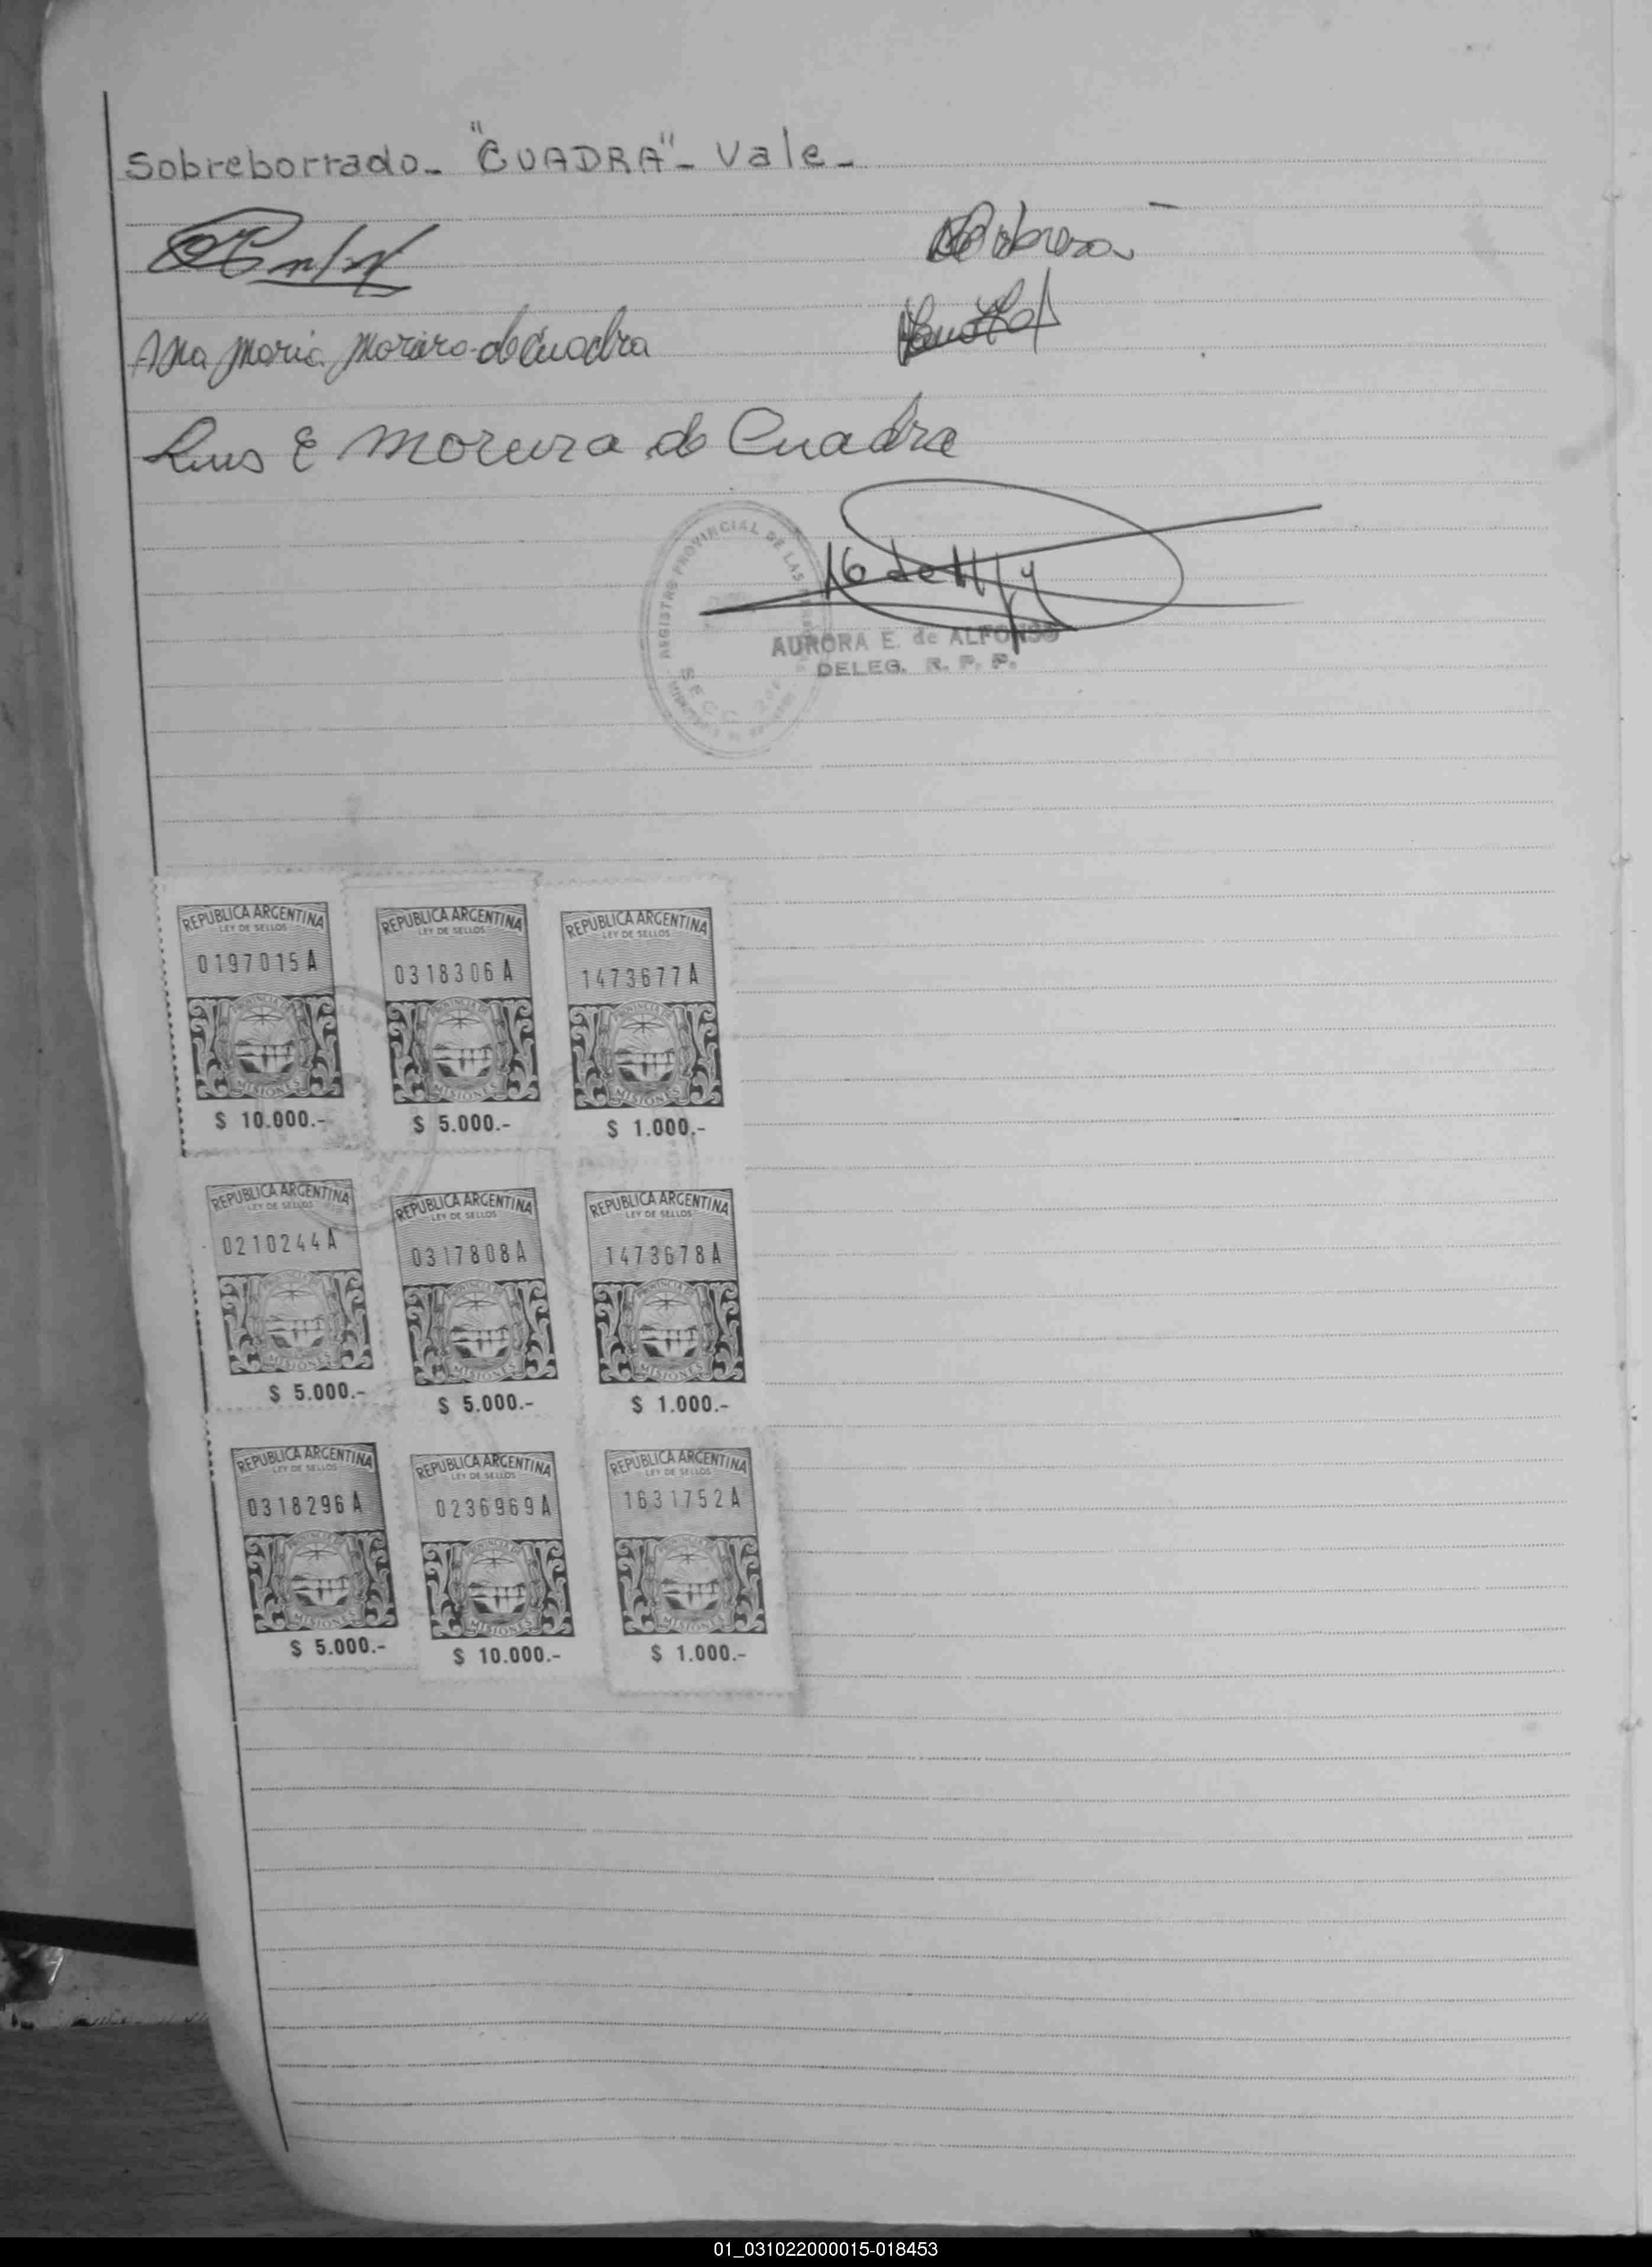 Sobreborrado_ "CUADRA"_ Vale_
Ana Maria Moreiro de Cuadra
Luis E Moreira de Cuadra
REGISTRO PROVINCIAL DE LAS
SECC
AURORA E. de ALFONSO
DELEG. R. P. P.
REPUBLICA ARGENTINA REPUBLICA ARGENTINA REPUBLICA ARGENTINA
LEY DE SELLOS LEY DE SELLOS LEY DE SELLOS
0197015A 0318306A 1473677A
PROVINCIA DE PROVINCIA DE PROVINCIA DE
MISIONES MISIONES MISIONES
$ 10.000.- $ 5.000.- $ 1.000.-
REPUBLICA ARGENTINA REPUBLICA ARGENTINA REPUBLICA ARGENTINA
LEY DE SELLOS LEY DE SELLOS LEY DE SELLOS
0210244A 0317808A 1473678A
PROVINCIA DE PROVINCIA DE PROVINCIA DE
MISIONES MISIONES MISIONES
$ 5.000.- $ 5.000.- $ 1.000.-
REPUBLICA ARGENTINA REPUBLICA ARGENTINA REPUBLICA ARGENTINA
LEY DE SELLOS LEY DE SELLOS LEY DE SELLOS
0318296A 0236969A 1631752A
PROVINCIA DE PROVINCIA DE PROVINCIA DE
MISIONES MISIONES MISIONES
$ 5.000.- $ 10.000.- $ 1.000.-
01_031022000015-018453